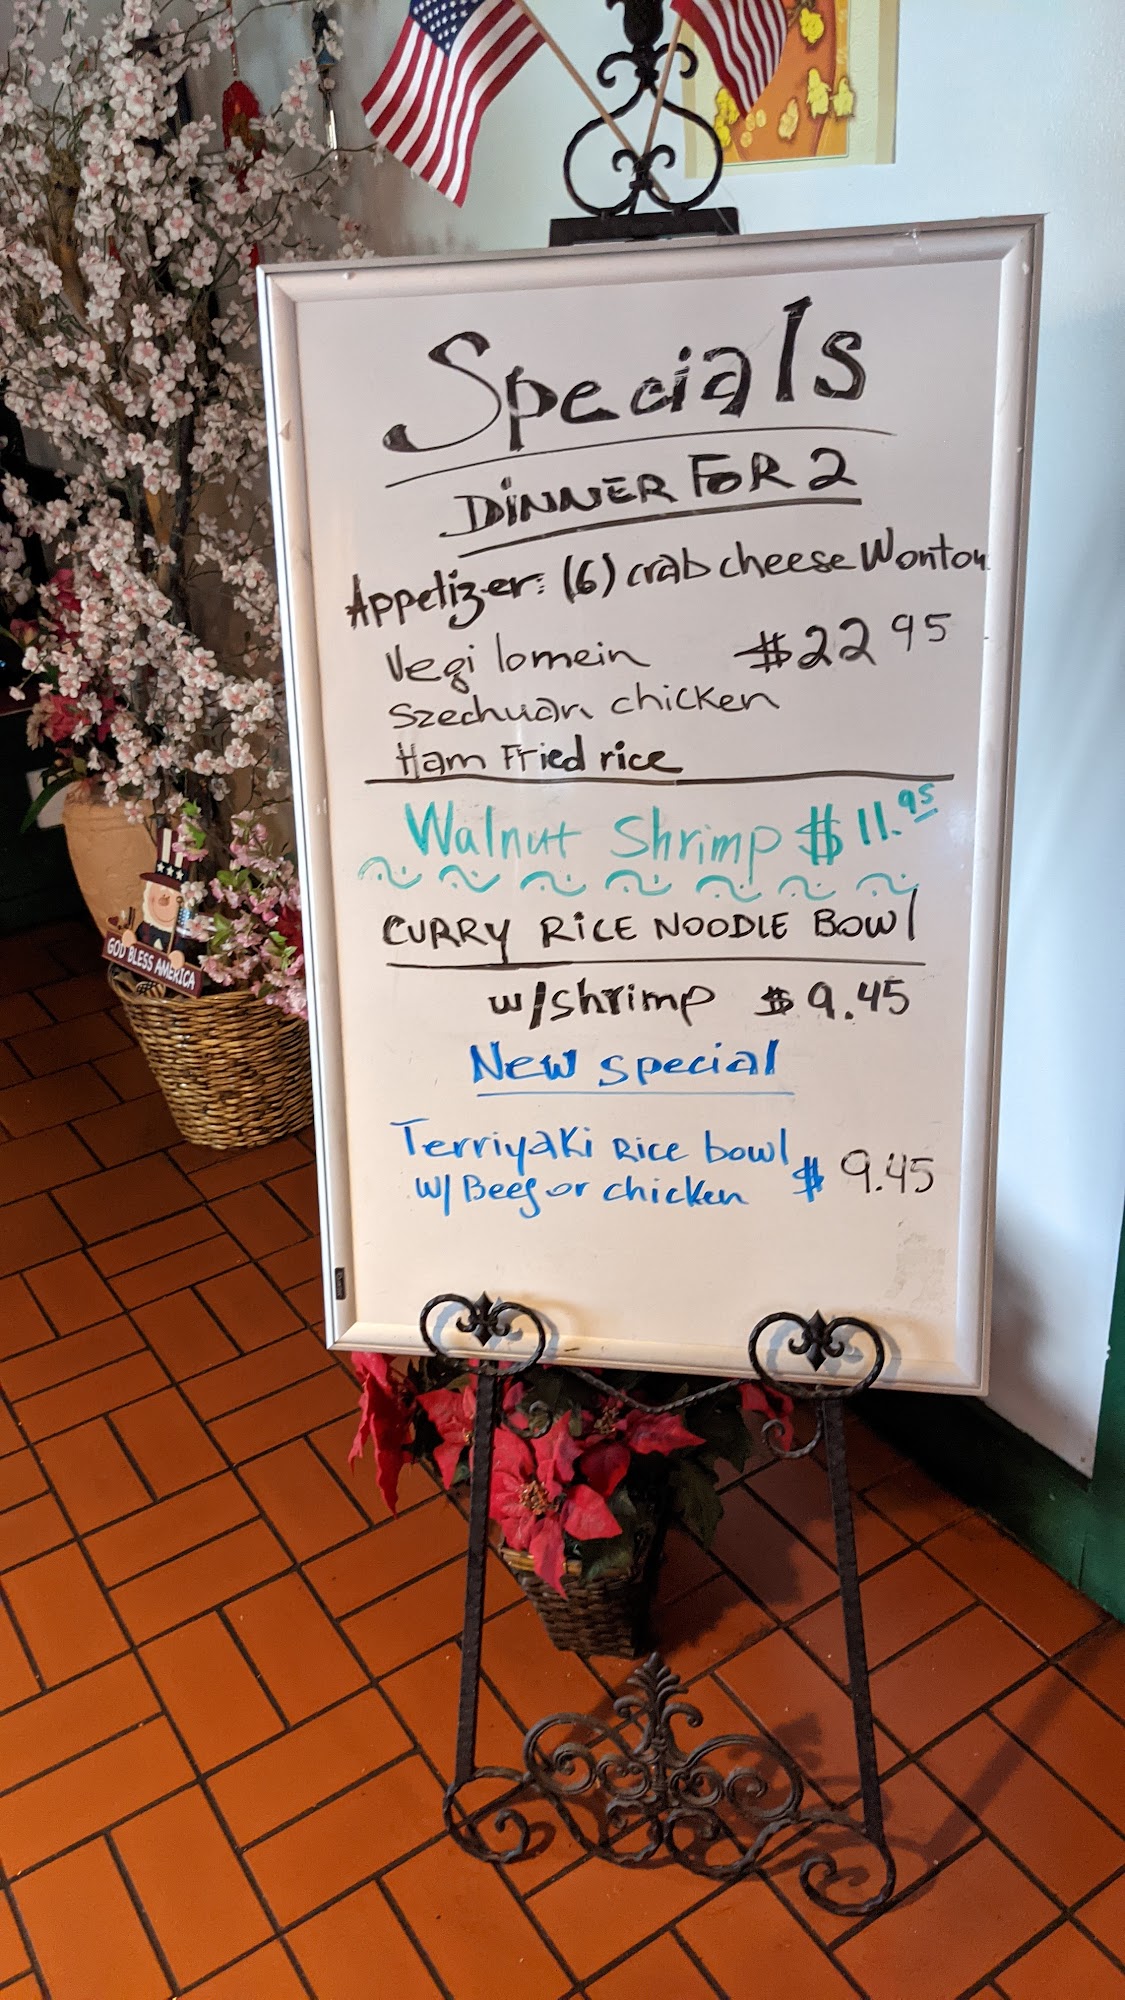 Specials
DINNER FOR 2
Appetizer: (6) crab cheese Wonton
Vegi lomein $22 95
Szechuan chicken
Ham Fried rice
Walnut Shrimp $11.95
CURRY RICE NOODLE BOWl
w/shrimp $9.45
New special
Terriyaki Rice bowl
w/ Beef or chicken $9.45
GOD BLESS AMERICA